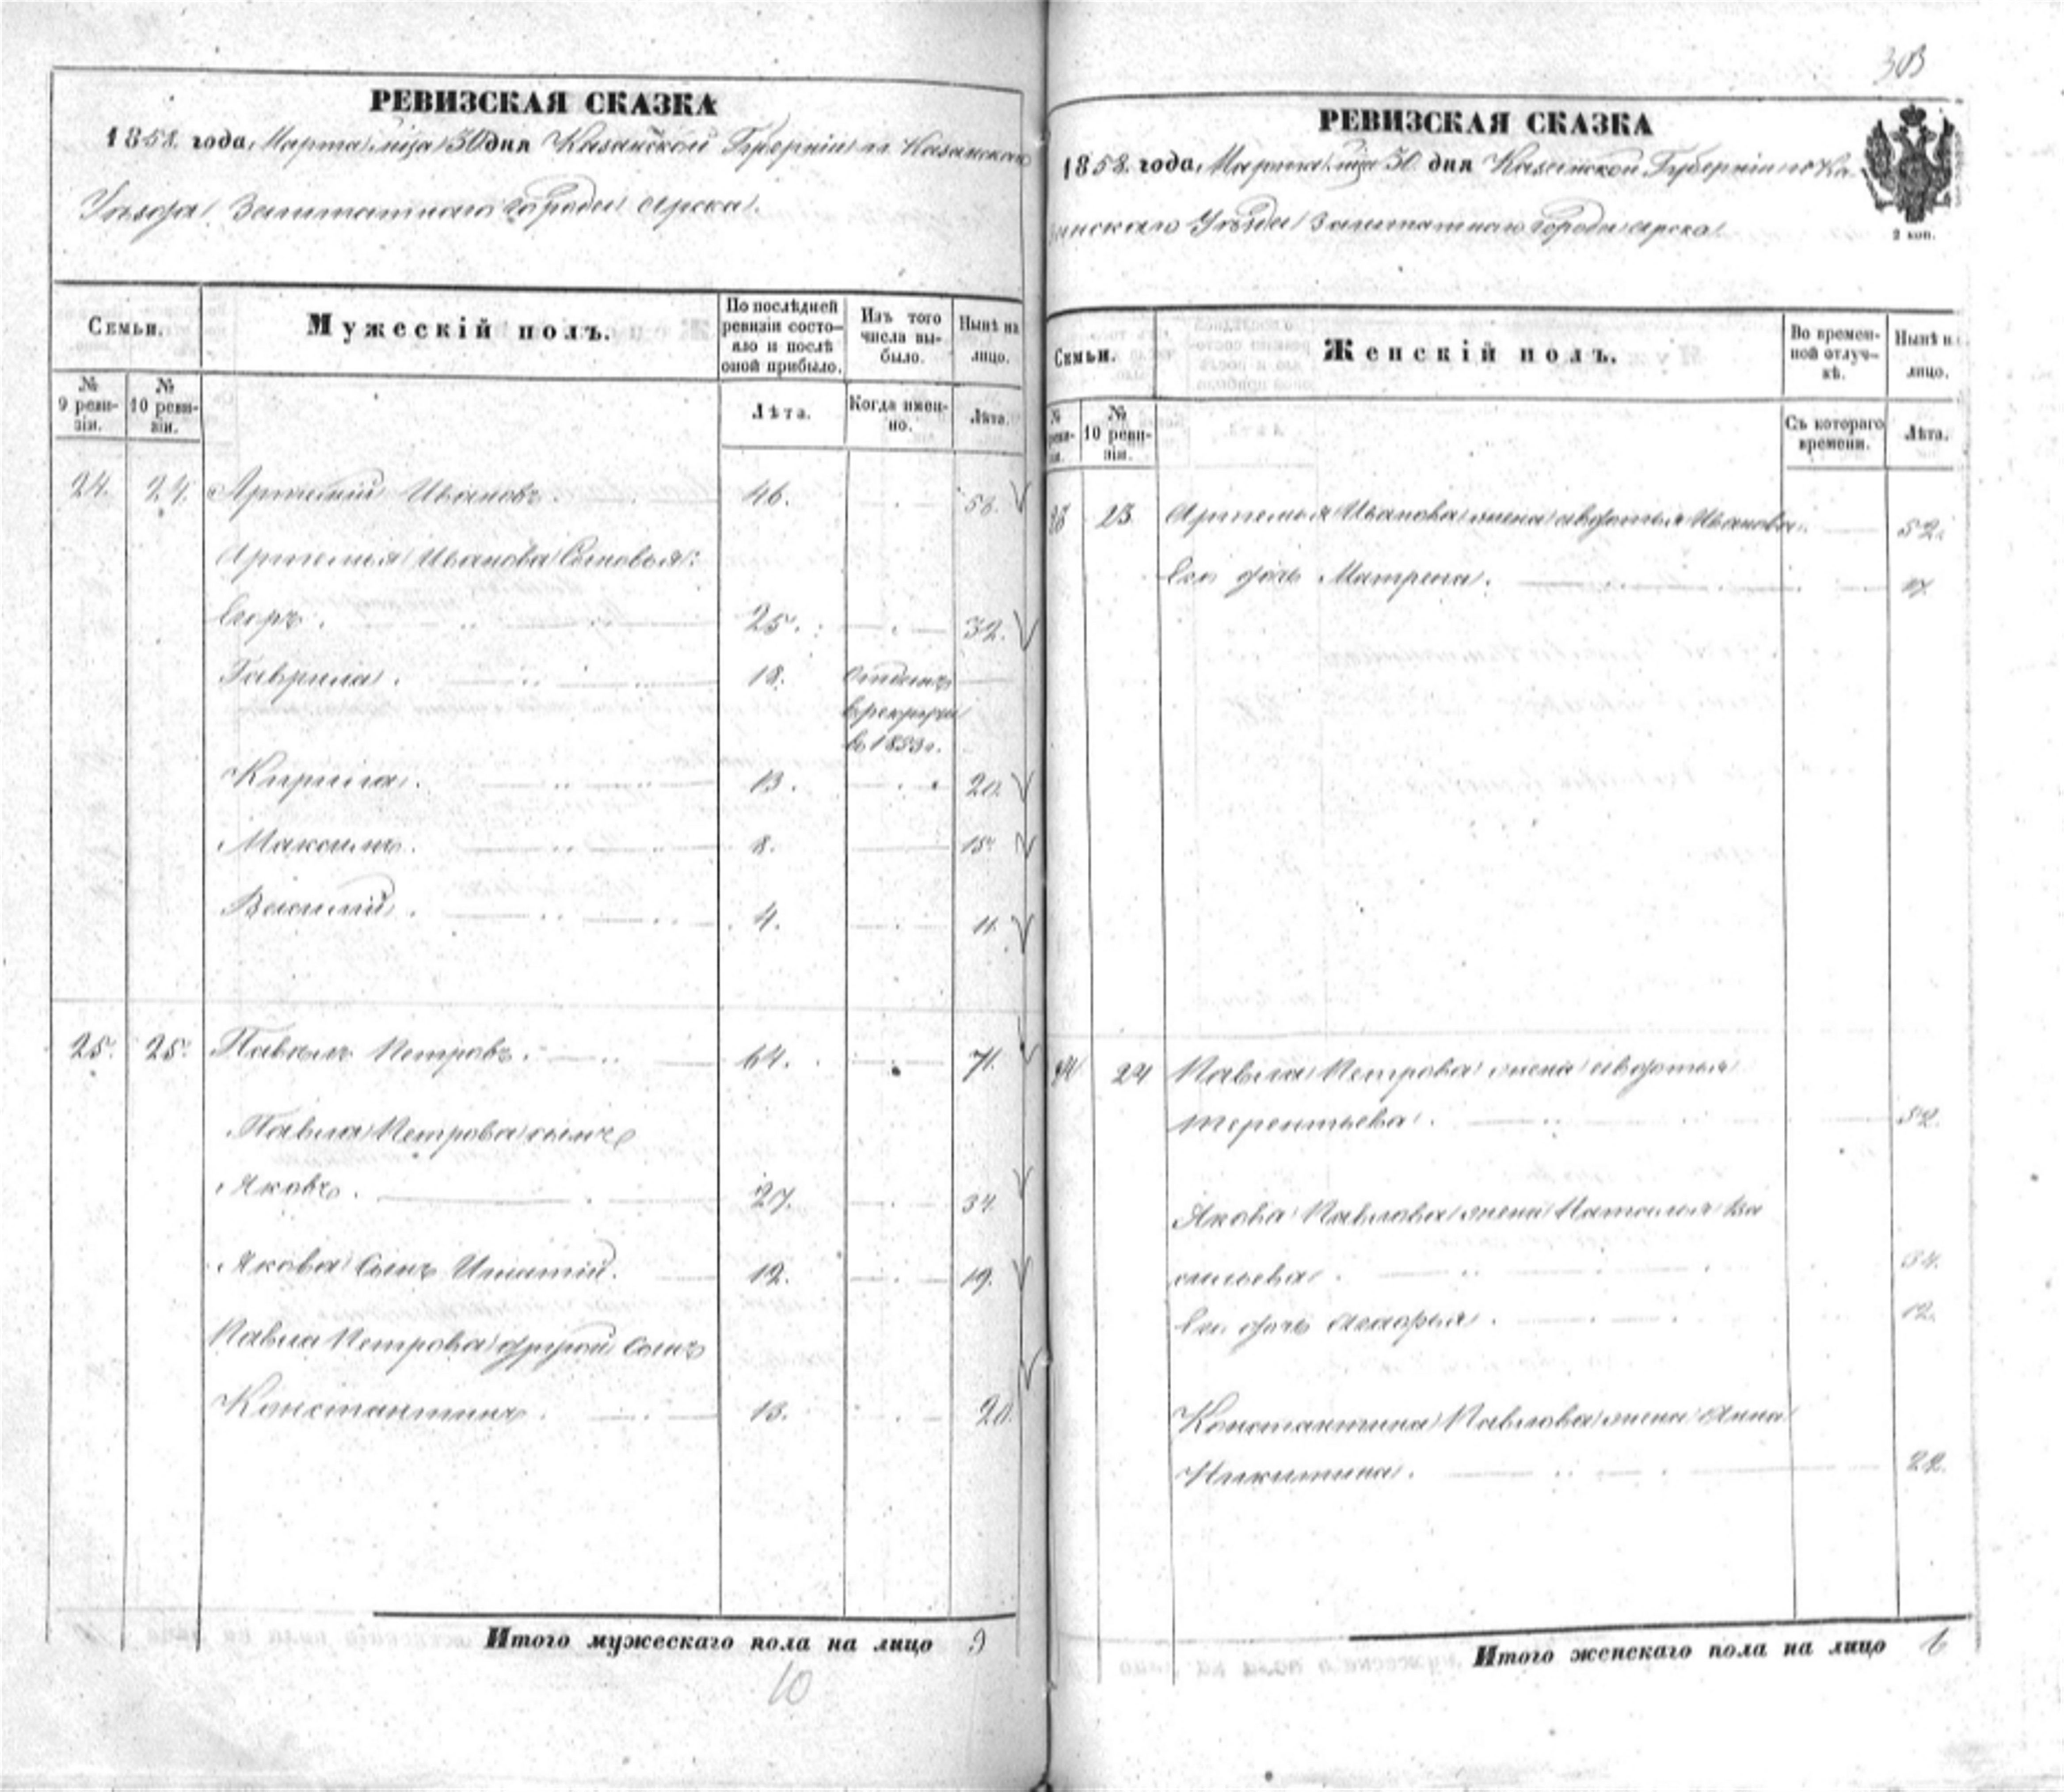 303
РЕВИЗСКАЯ СКАЗКА
1858 года, Марта м-ца 30 дня Казанской Губерніи Казанскаго
Уѣзда Заштатнаго города Арска.
Семьи.
Мужескій полъ.
По послѣдней ревизіи состояло и послѣ оной прибыло.
Изъ того числа выбыло.
Нынѣ на лицо.
№ 9 ревизіи.
№ 10 ревизіи.
Лѣта.
Когда именно.
Лѣта.
24. 24. Артемій Ивановъ. 46.
Артемья Иванова Сыновья:
Егоръ. 25. 32.
Гаврила. 18. Отданъ
в рекруты
в 1853 г.
Кирила. 13. 20.
Максимъ. 8. 15.
Василій. 4. 11.
25. 25. Павелъ Петровъ. 64. 71.
Павла Петрова сынъ
Яковъ. 27. 34.
Якова Сынъ Игнатій. 12. 19.
Павла Петрова другой Сынъ
Константинъ. 13. 20.
Итого мужескаго пола на лицо 9
10
РЕВИЗСКАЯ СКАЗКА
1858 года, Марта м-ца 30 дня Казанской Губерніи Ка-
занскаго Уѣзда Заштатнаго города Арска.
2 коп.
Семьи.
Женскій полъ.
Во временной отлучкѣ.
Нынѣ на лицо.
№ ревизіи.
№ 10 ревизіи.
Съ котораго времени.
Лѣта.
23 23 Артемья Иванова жена Авдотья Иванова. 52.
Его дочь Матрена. 17.
24 24 Павла Петрова жена Авдотья
Терентьева. 52.
Якова Павлова жена Наталья Ва
сильева. 34.
Его дочь 12.
Константина Павлова жена Анна
Никитина. 22.
Итого женскаго пола на лицо 6